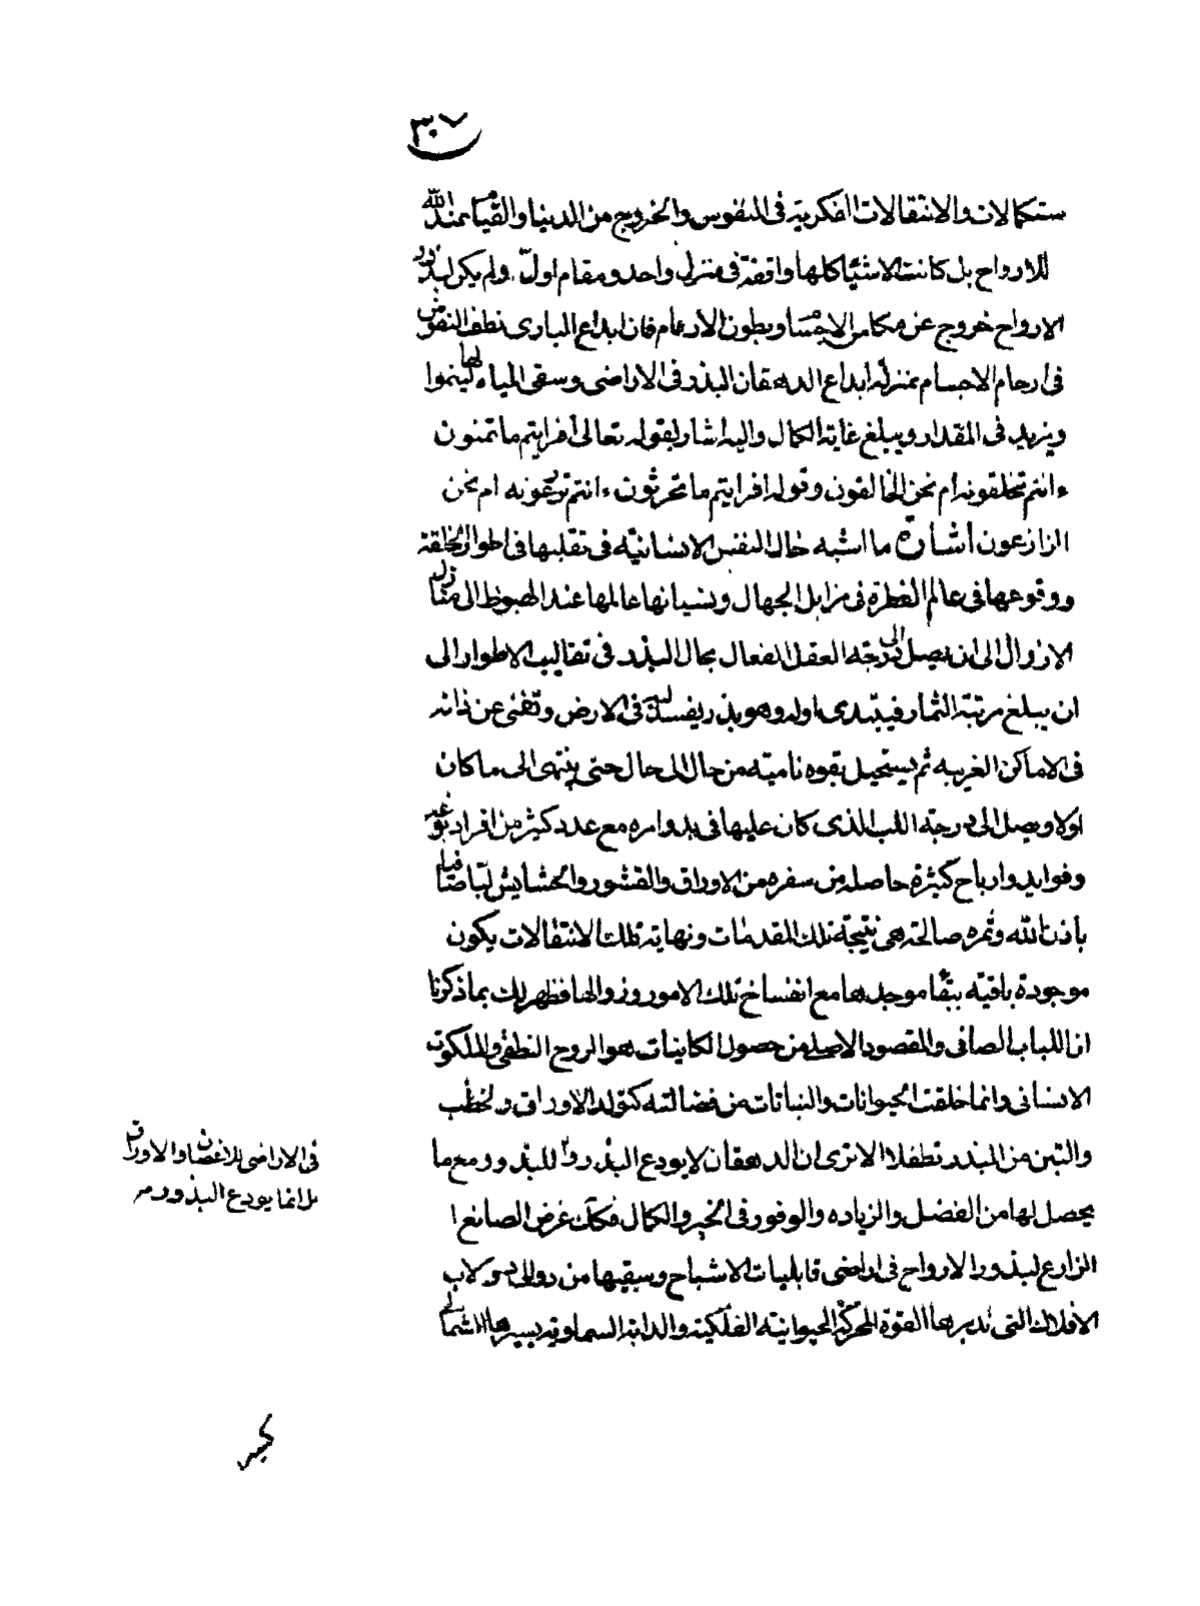 ٣٠٧
ستكمالات والانتقالات الفكرية فى النفوس والخروج من الدنيا والقيام عند الله
للارواح بل كانت الاشيا كلها واقفة فى منزل واحد ومقام اول ولم يكن لبذور
الارواح خروج عن مكامن الاجسا وبطون الارحام فان ابداع البارى نطف النفوس
فى ارحام الاجسام بمنزلة ابداع الدهقان البذر فى الاراضى وسقى المياه لها لينموا
ويزيد فى المقدار ويبلغ غاية الكمال واليه اشار بقوله تعالى أفرايتم ما تمنون
ءانتم تخلقونه ام نحن الخالقون وقوله افرايتم ما تحرثون ءانتم تزرعونه ام نحن
الزازعون اشارة ما اشبه حال النفس الانسانيه فى تقلبها فى اطوار الخلقة
ووقوعها فى عالم الفطرة فى مزابل الجهال ونسيانها عالمها عند الهبوط الى منازل
الارذال الى ان يصل الى درجه العقل الفعال بحال البذر فى تقاليب الاطوار الى
ان يبلغ مرتبة الثمار فيبتدى اوله وهو بذر يفسد لبه فى الارض وتفنى عن ذاته
فى الاماكن الغريبه ثم يستحيل بقوه ناميته من حال الى حال حتى ينتهى الى ما كان
اولا ويصل الى درجة اللب الذى كان عليها فى بدو امره مع عدد كثير من افراد نوعه
وفوايد وارباح كثيرة حاصله من سفره من الاوراق والقشور والحشايش لبا صافيا
باذن الله وثمره صالحة هى نتيجة تلك المقدمات ونهاية تلك الانتقالات يكون
موجودة باقية ببقا موجدها مع انفساخ تلك الامور وزوالها فظهر لك بما ذكرنا
ان اللباب الصافى والمقصود الاصلى من حصول الكاينات هو الروح النطقى والملكوت
الانسانى وانما خلقت الحيوانات والنباتات من فضالته كتولد الاوراق والحطب
والتبن من البذر تطفلا الا ترى ان الدهقان لا يودع البذور للبذور مع ما
فى الاراضى للاغصان والاوراق
بل انما يودع البذور
يحصل لها من الفضل والزياده والوفور فى الخير والكمال فكان غرض الصانع ا
الزارع لبذور الارواح فى اراضى قابليات الاشباح وسقيها من دولاب
الافلاك التى تدبرها القوة المحركة الحيوانية الفلكية والدابة السماوية بسيرها الشمالى